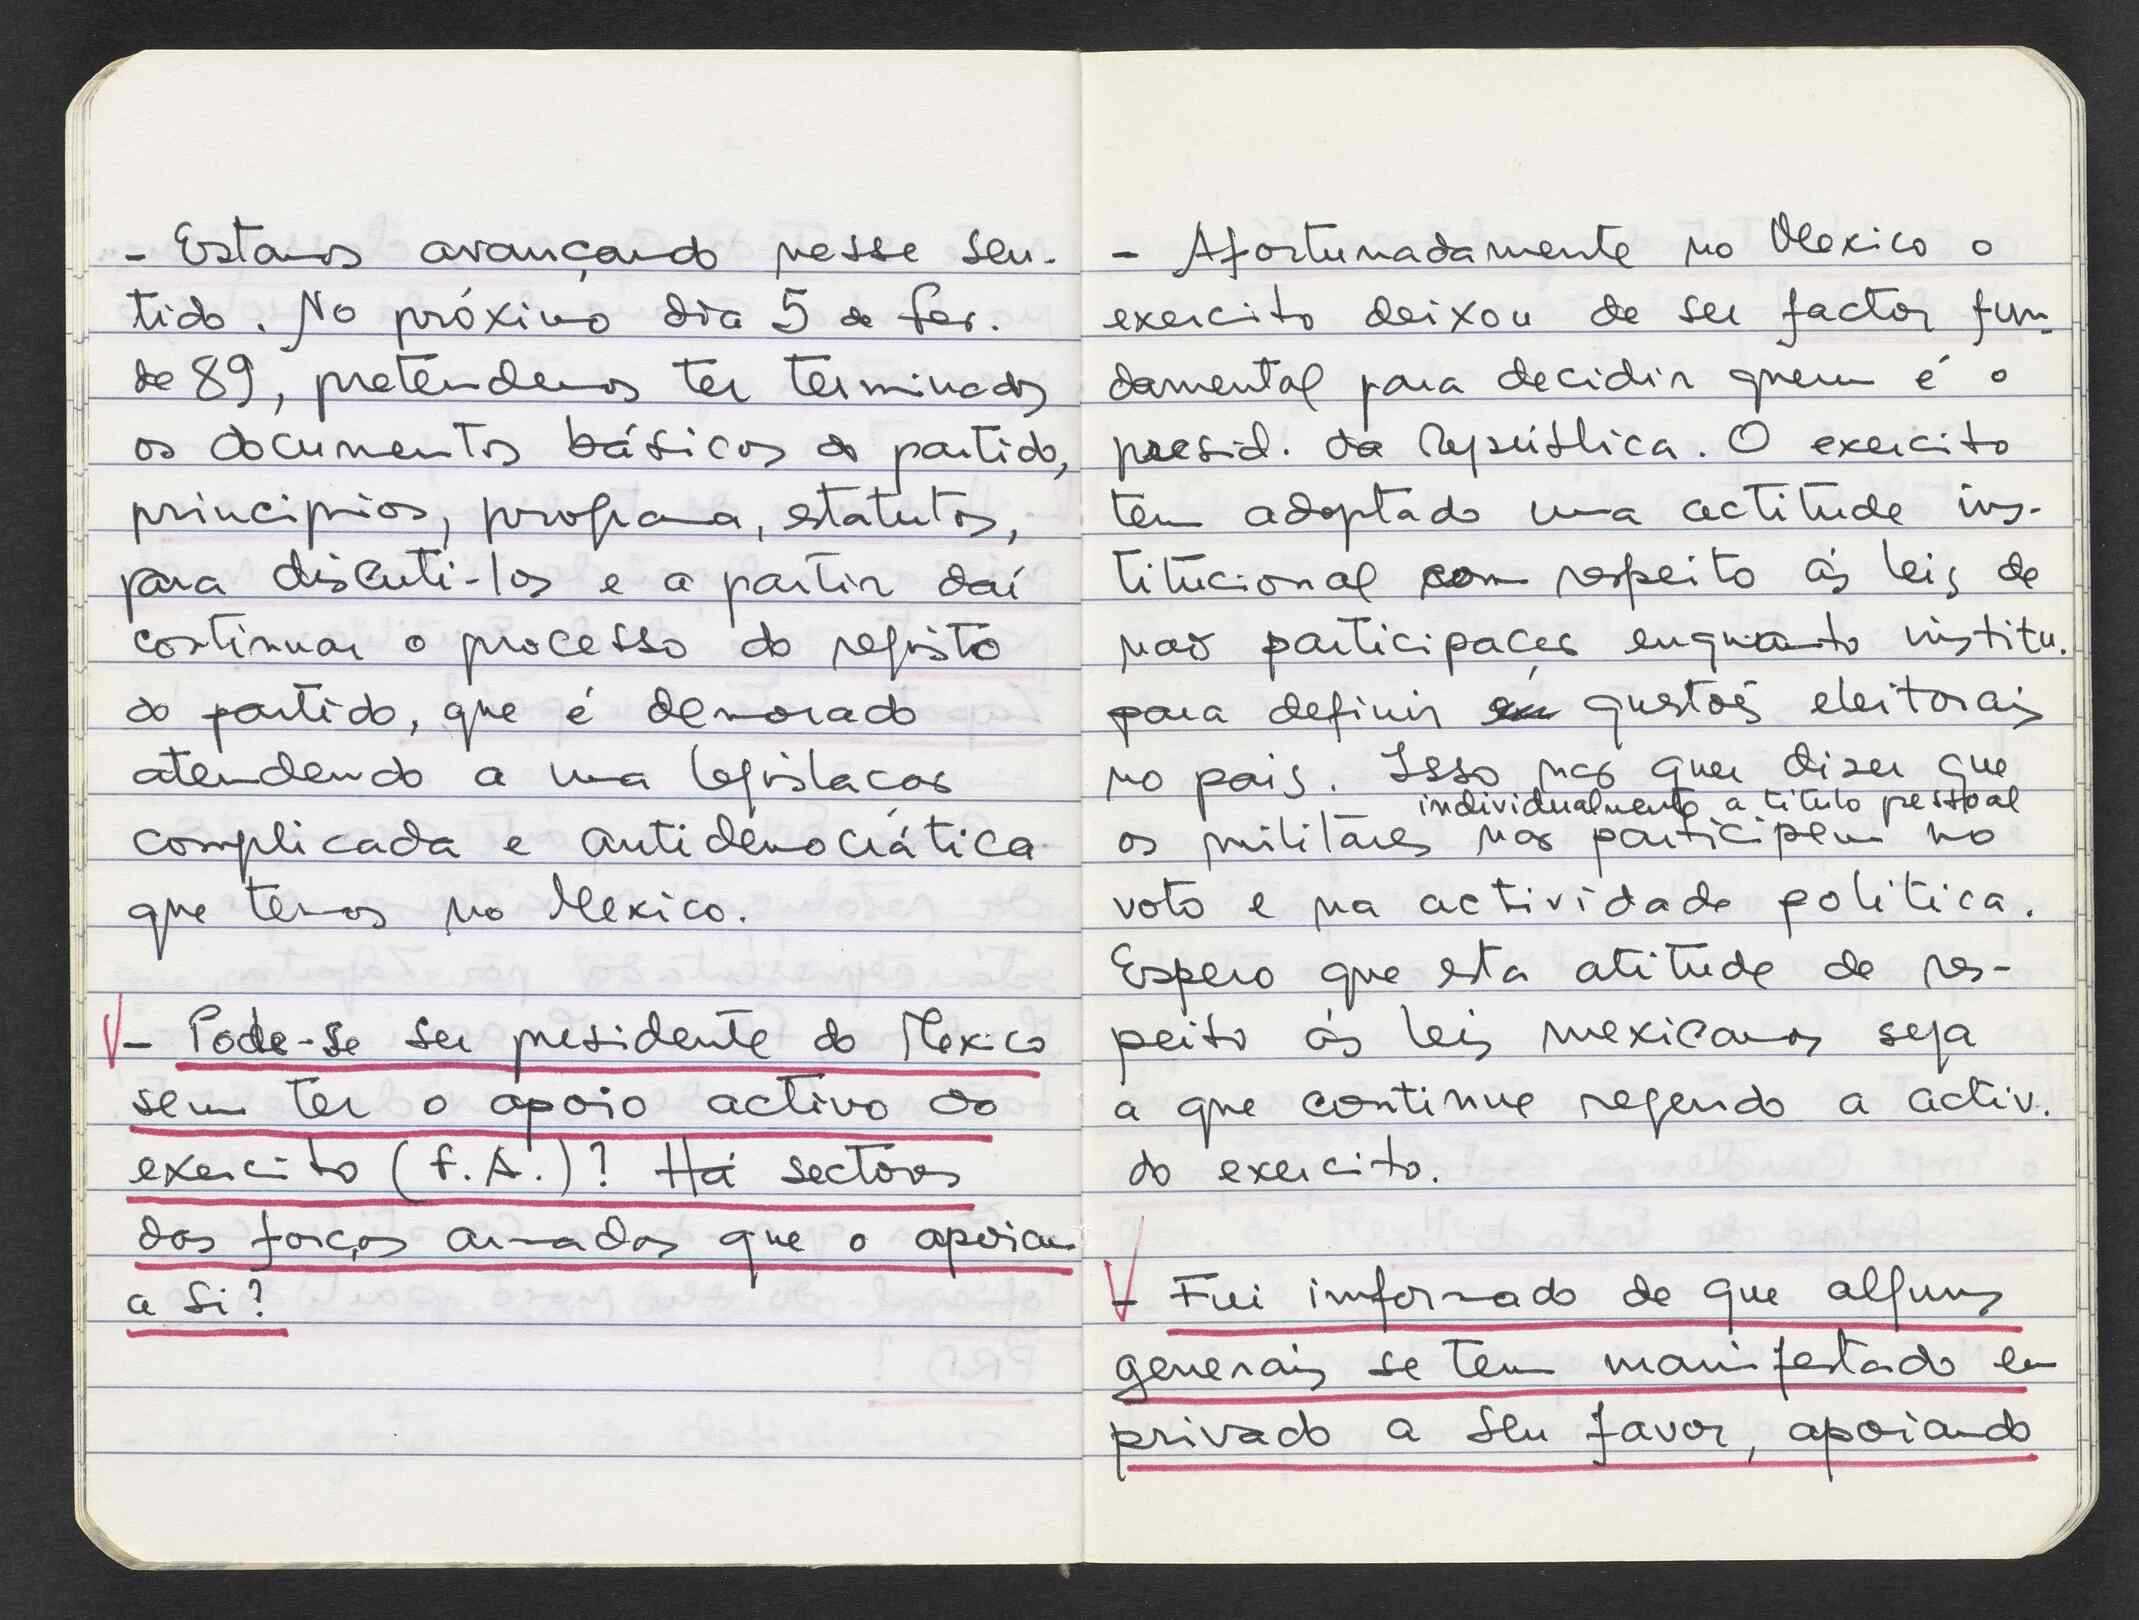 - Estamos avançando nesse sen-
tido. No próximo dia 5 de Fev.
de 89, pretendemos ter terminados
os documentos básicos do partido,
principios, programa, estatutos,
para discuti-los e a partir daí
continuar o processo do registo
do partido, que é demorado
atendendo a uma legislacao
complicada e antidemocrática
que temos no Mexico.
- Pode-se ser presidente do Mexico
sem ter o apoio activo do
exercito (F.A.)? Há sectores
das forças armadas que o apoiam
a si?
- Afortunadamente no Mexico o
exercito deixou de ser factor fun-
damental para decidir quem é o
presid. da República. O exercito
tem adoptado uma actitude ins-
titucional com respeito ás leis de
nao participaçao enquanto institu.
para definir questoes eleitorais
no pais. Isso nao quer dizer que
individualmente a titulo pessoal
os militares nao participem no
voto e na actividade politica.
Espero que esta atitude de res-
peito ás leis mexicanas seja
a que continue regendo a activ.
do exercito.
- Fui informado de que alguns
generais se tem manifestado em
privado a seu favor, apoiando